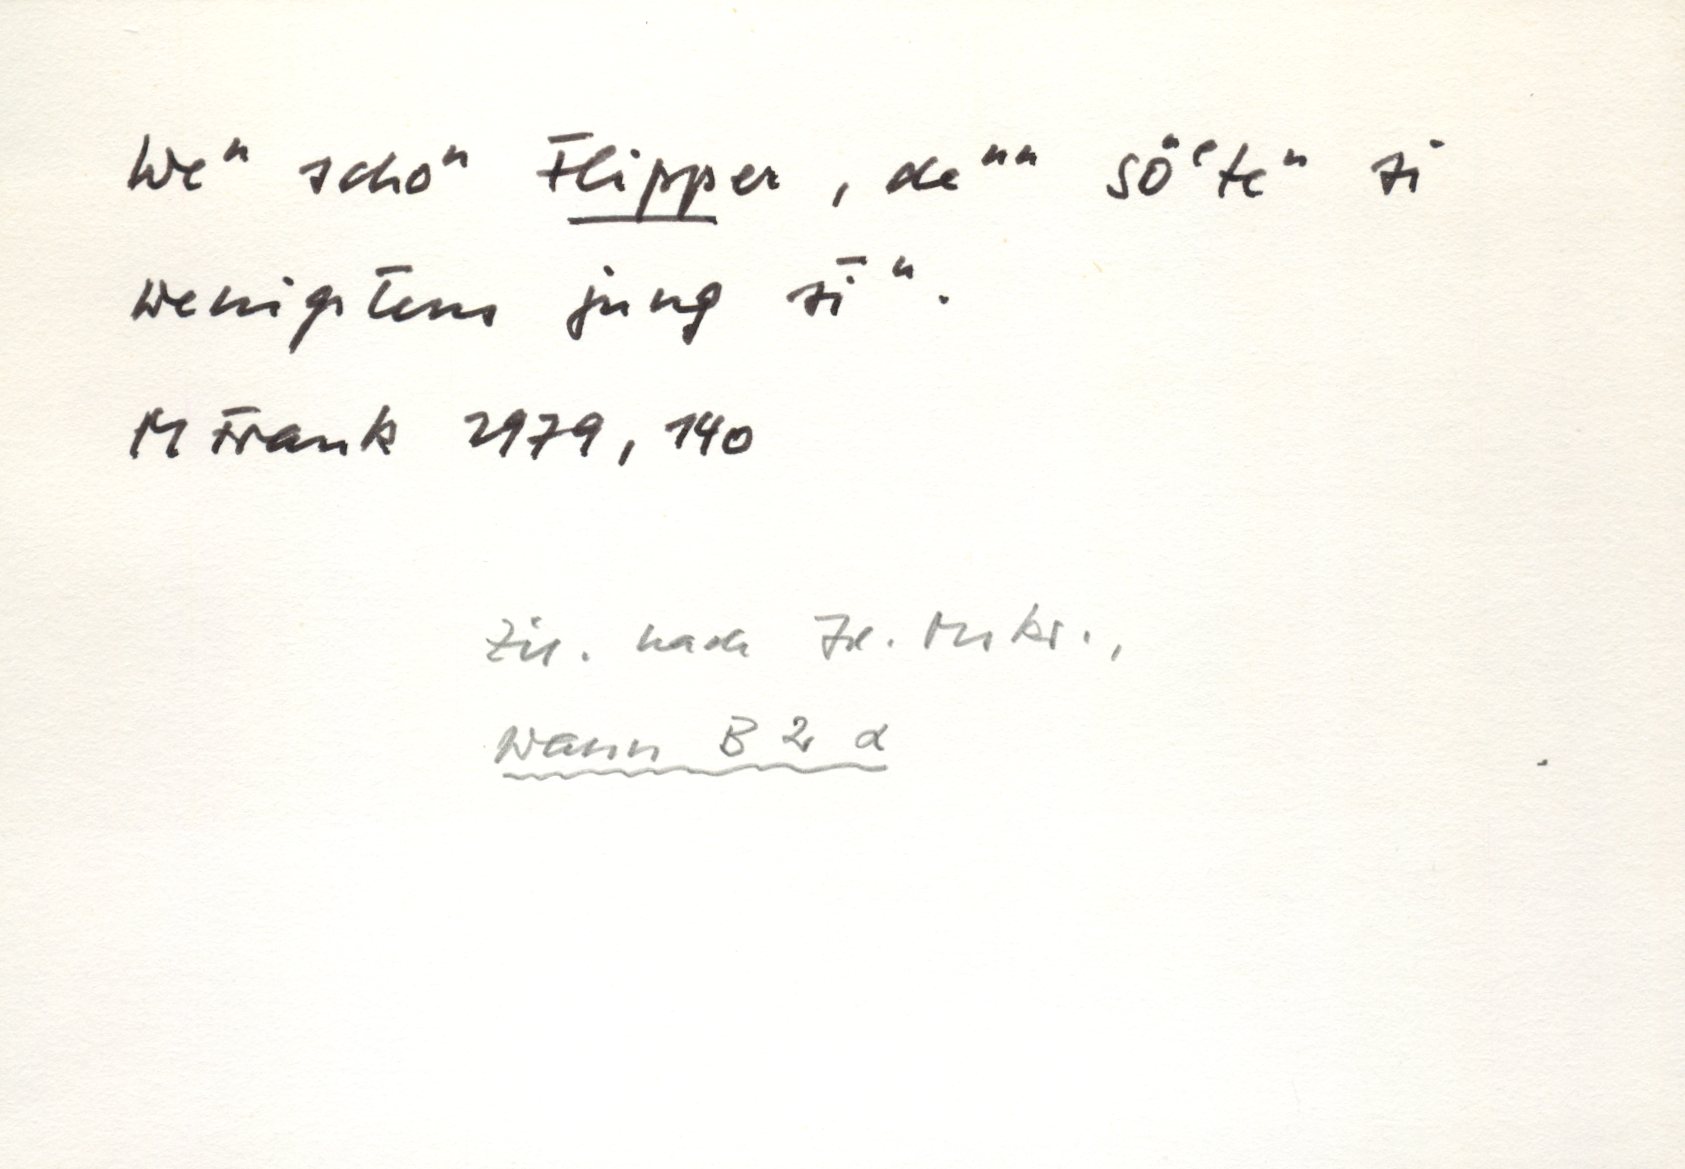 Weⁿ schoⁿ Flipper, deⁿⁿ söᵉteⁿ si
wenigstens jung sīⁿ.
MFrank 1979, 140
Zit. nach Id. Mskr.,
wann B 2 α